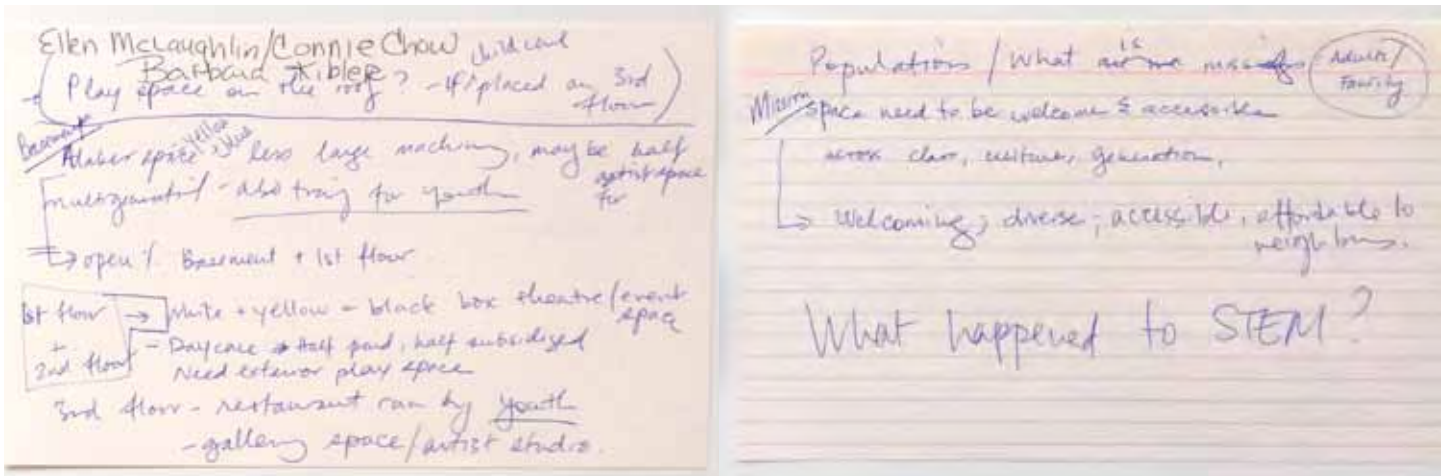 Ellen McLaughlin/Connie Chow
Barbara Kibler
childcare
(Play space on the roof? - If placed on 3rd floor)
Basement
Maker space, yellow + blue
less large machinery, maybe half
artist space
for
multigenerational - also training for youth
→ open % Basement + 1st floor
1st floor + 2nd floor → White + yellow - black box theatre/event space
- Daycare → Half paid, half subsidized
Need exterior play space
3rd floor - restaurant run by youth
- gallery space/artist studio.
Populations / What is missing
Adults/
Family
space need to be welcome & accessible
across class, cultures, generation,
→ Welcoming; diverse; accessible, affordable to
neighbors.
What happened to STEM?